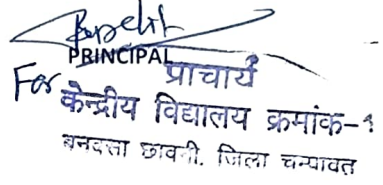 PRINCIPAL
For प्राचार्य
केन्द्रीय विद्यालय क्रमांक-१
बनबसा छावनी, जिला चम्पावत